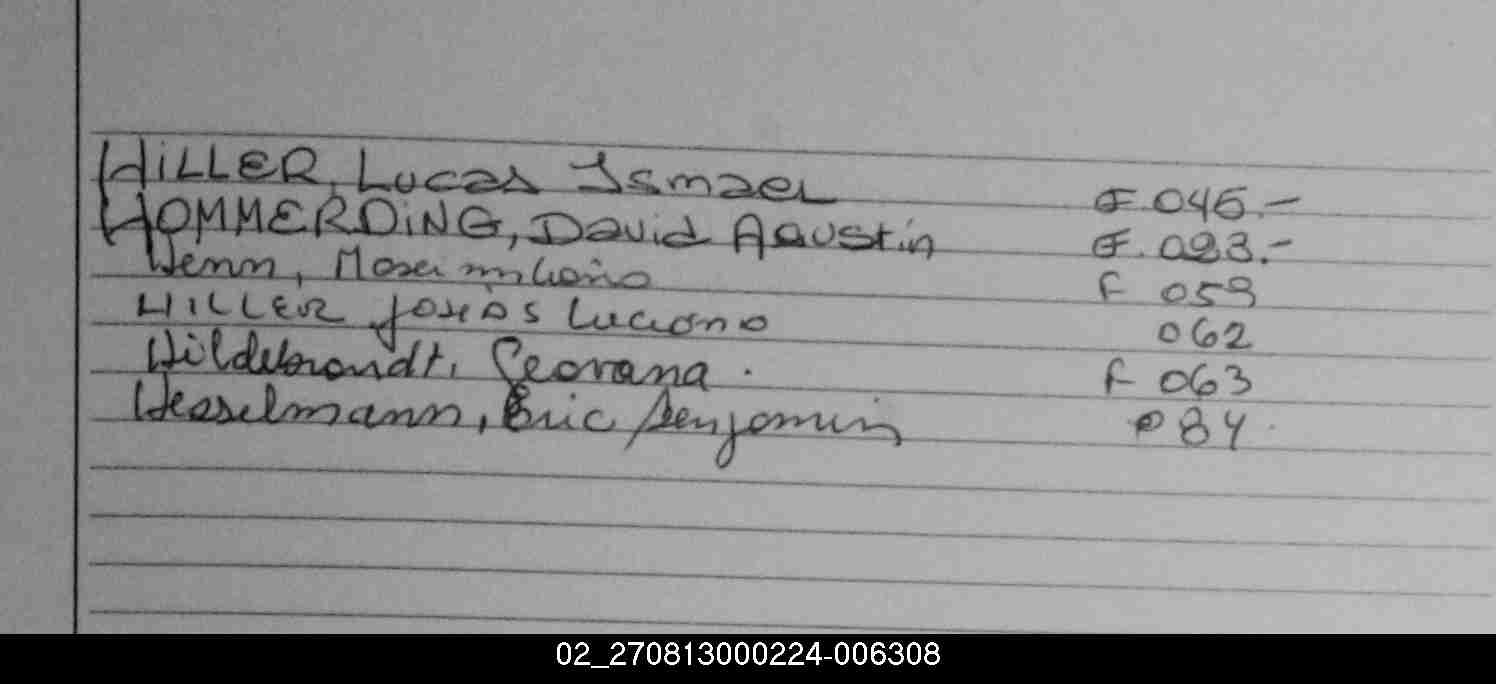 HiLLER, Lucas Ismael F. 046.-
HOMMERDiNG, David Agustin F. 023.-
Henn, Maximiliano F 059
HILLER Josías Luciano 062
Hildebrandt, Geovana. F 063
Hesselmann, Eric Benjamin 084.
02_270813000224-006308